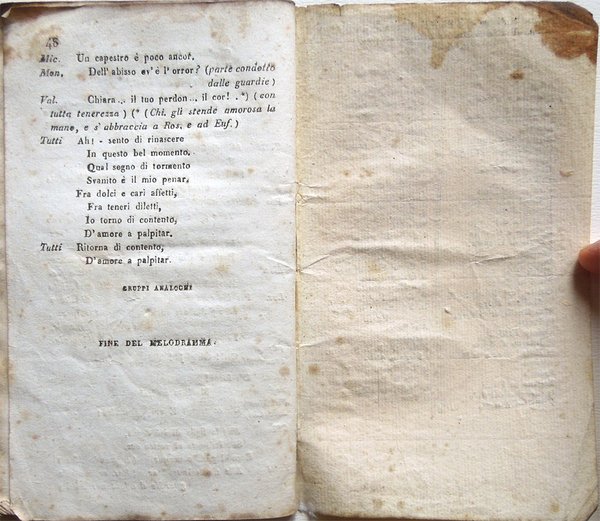 48
Mic. Un capestro è poco ancor.
Mon. Dell' abisso ov'è l' orror? (parte condotto
dalle guardie)
Val. Chiara... il tuo perdon... il cor! . *) (con
tutta tenerezza) (* (Chi. gli stende amorosa la
mano, e s' abbraccia a Ros. e ad Euf.)
Tutti Ah! - sento di rinascere
In questo bel momento.
Qual sogno di tormento
Svanito è il mio penar.
Fra dolci e cari affetti,
Fra teneri diletti,
Io torno di contento,
D' amore a palpitar.
Tutti Ritorna di contento,
D' amore a palpitar.
GRUPPI ANALOGHI
FINE DEL MELODRAMMA.